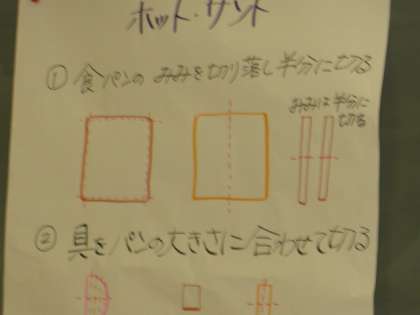 ホット・サンド
① 食パンのみみを切り落し半分に切る
みみは半分に
切る
② 具をパンの大きさに合わせて切る